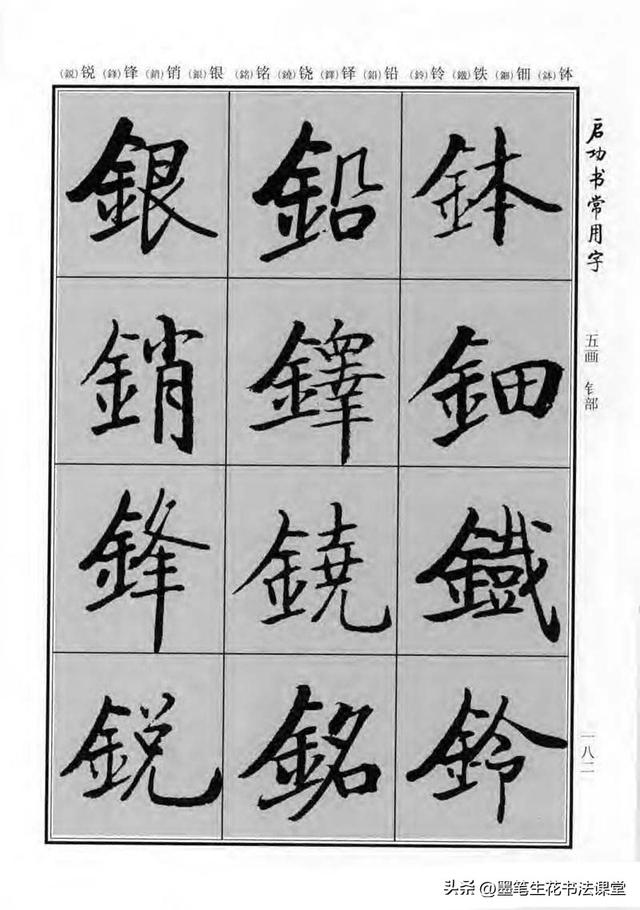 (鋭)锐 (鋒)锋 (銷)销 (銀)银 (銘)铭 (鐃)铙 (鐸)铎 (鉛)铅 (鈴)铃 (鐵)铁 (鈿)钿 (鉢)钵
启功书常用字
五画 钅部
一八二
鉢鈿鐵鈴
鉛鐸鐃銘
銀銷鋒鋭
头条 @墨笔生花书法课堂